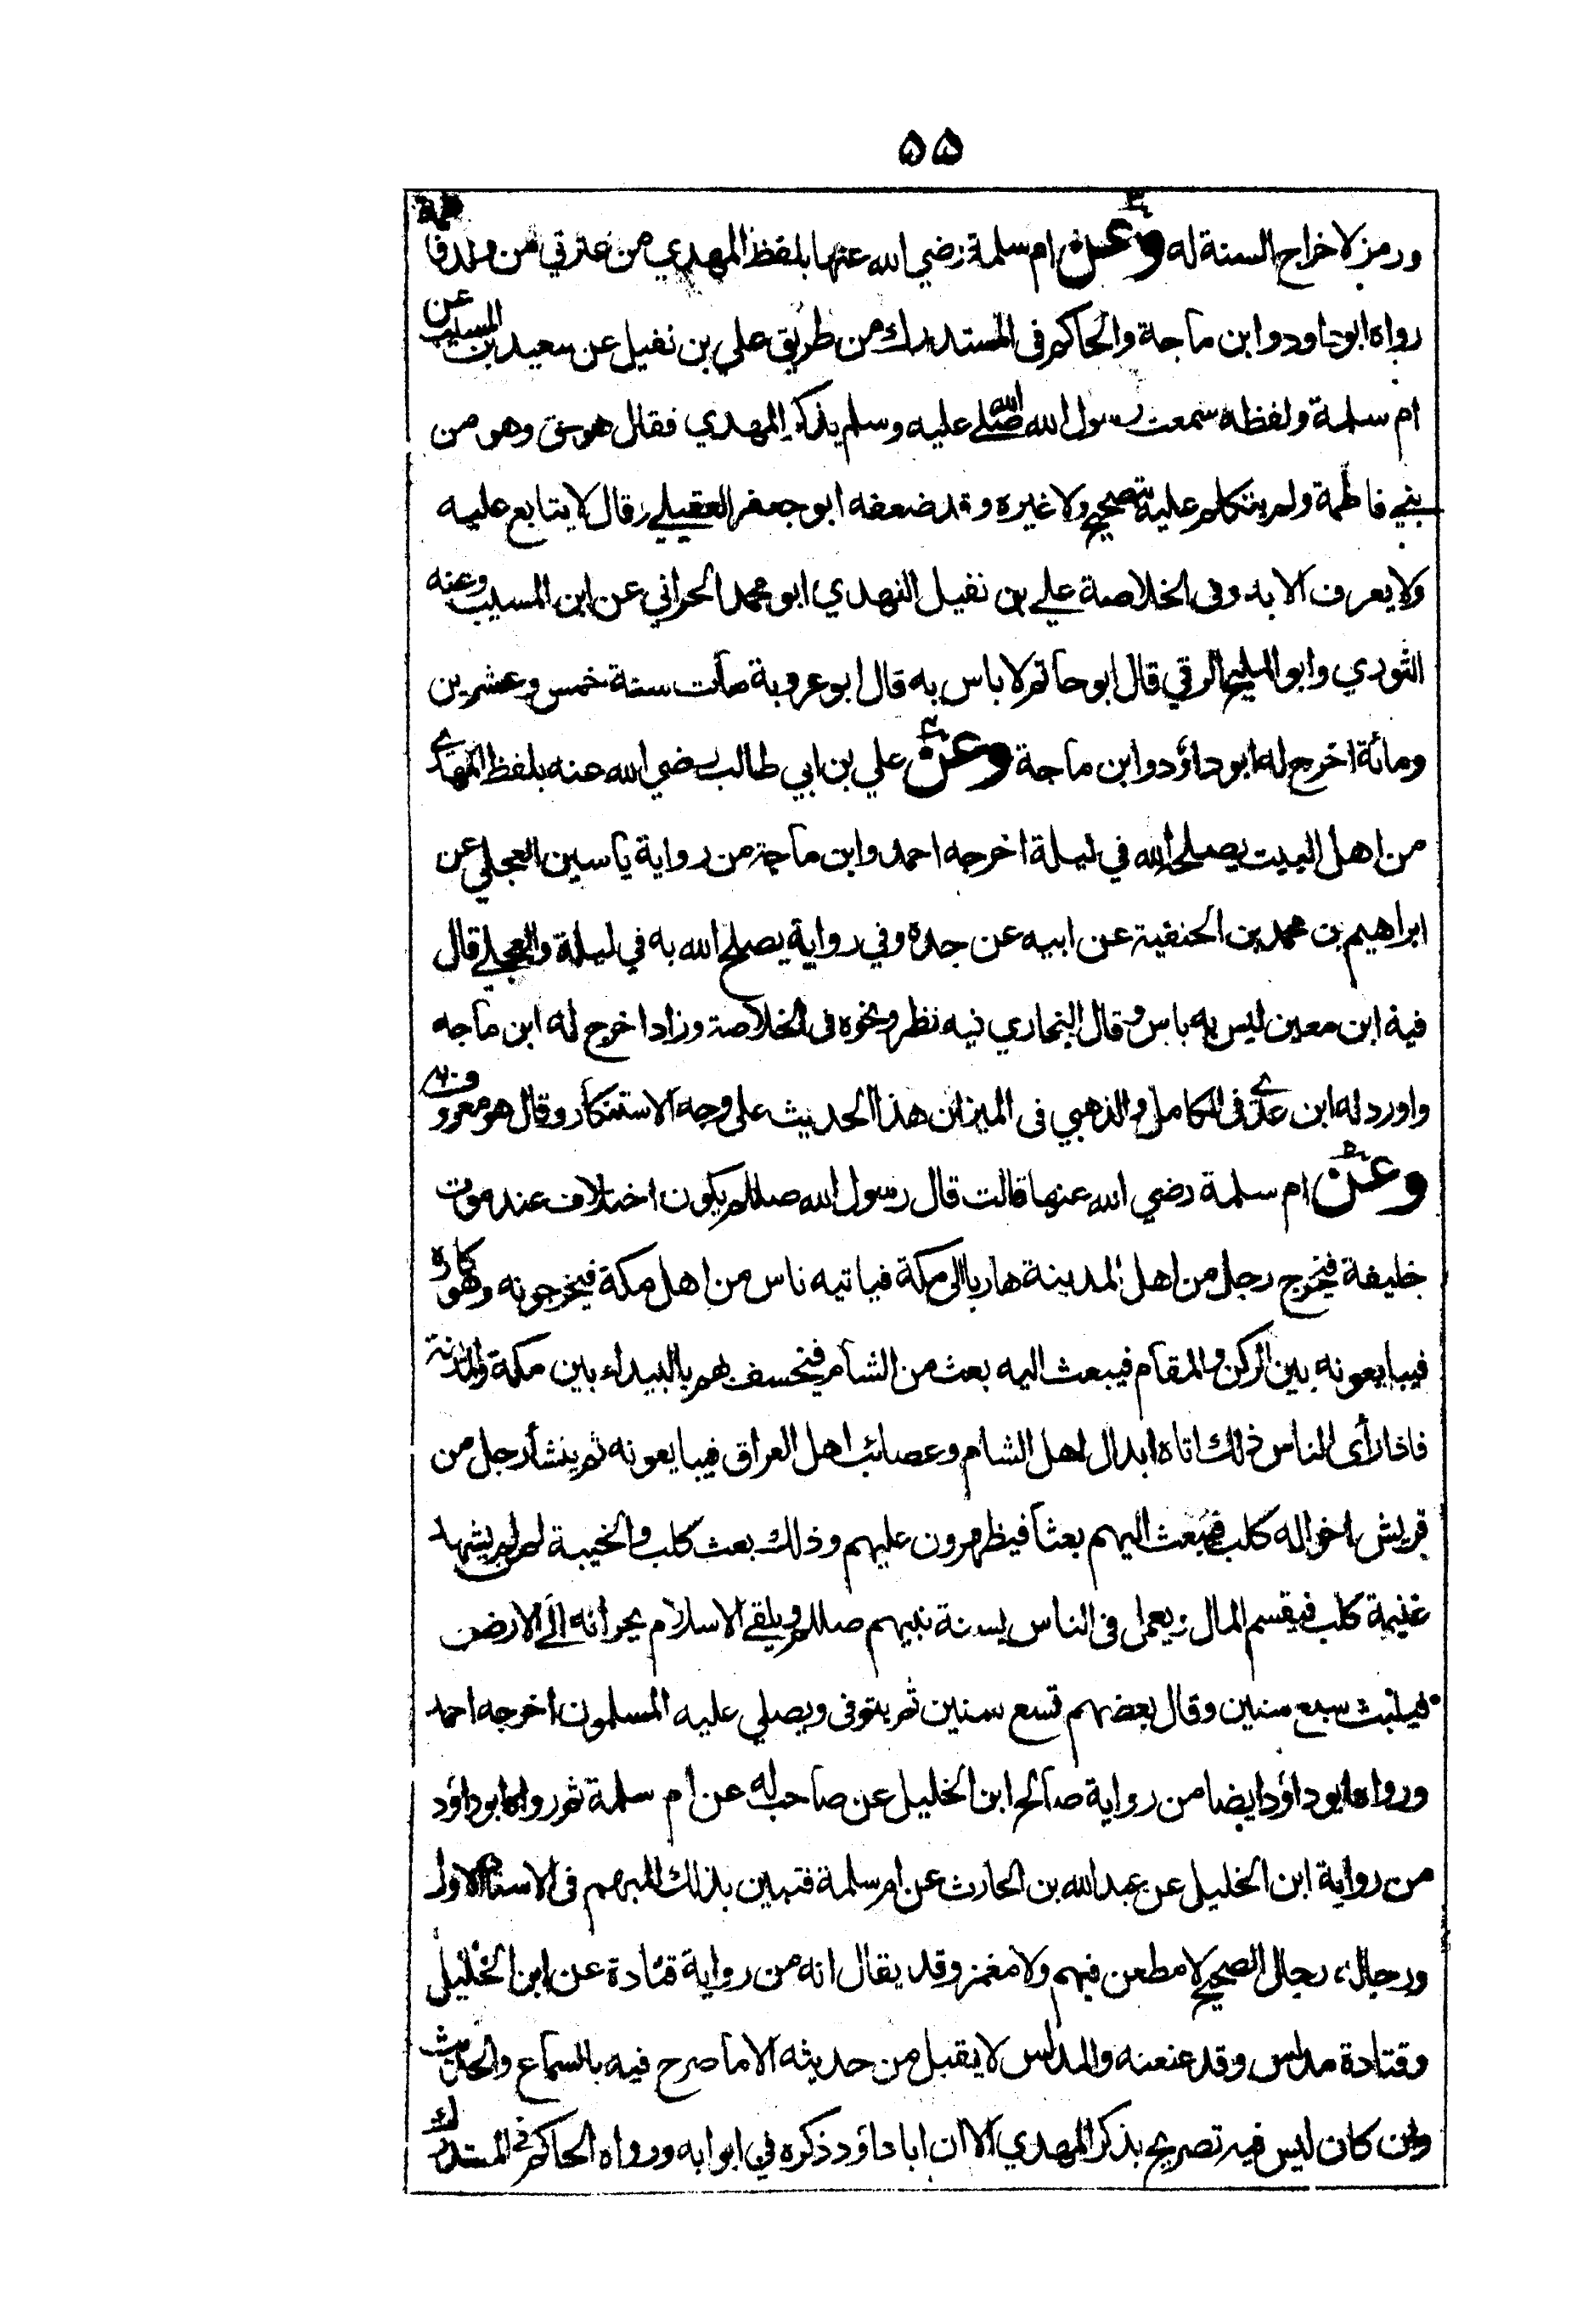 ۵۵
ورمز لاخراج الستة له وعن ام سلمة رضي الله عنها بلفظ المهدي من عترتي من ولد فاطمة
رواه ابوداود وابن ماجة والحاكم فى المستدرك من طريق علي بن نفيل عن سعيد بن المسيب عن
ام سلمة ولفظه سمعت رسول الله صلى الله عليه وسلم يذكر المهدي فقال هو حق وهو من
بني فاطمة ولم يتكلم عليه بتصحيح ولا غيره وقد ضعفه ابو جعفر العقيلي وقال لا يتابع عليه
ولا يعرف الا به وفى الخلاصة علي بن نفيل النهدي ابو محمد الحراني عن ابن المسيب وعنه
الثوري وابو المليح الرقي قال ابو حاتم لا باس به قال ابو عروبة مات سنة خمس وعشرين
ومائة اخرج له ابو داؤد وابن ماجة وعن علي بن ابي طالب رضي الله عنه بلفظ المهدي
من اهل البيت يصلح الله في ليلة اخرجه احمد وابن ماجة من رواية ياسين العجلي عن
ابراهيم بن محمد بن الحنفية عن ابيه عن جده وفي رواية يصلح الله به في ليلة والعجلي قال
فيه ابن معين ليس به باس وقال البخاري فيه نظر ونحوه فى الخلاصة وزاد اخرج له ابن ماجه
واورد له ابن عدي فى الكامل والذهبي فى الميزان هذا الحديث على وجه الاستنكار وقال هو معروف به
وعن ام سلمة رضي الله عنها قالت قال رسول الله صللم يكون اختلاف عند موت
خليفة فيخرج رجل من اهل المدينة هاربا الى مكة فياتيه ناس من اهل مكة فيخرجونه وهو كاره
فيبايعونه بين الركن والمقام فيبعث اليه بعث من الشام فيخسف بهم بالبيداء بين مكة والمدينة
فاذا رأى الناس ذلك اتاه ابدال اهل الشام وعصائب اهل العراق فيبايعونه ثم ينشأ رجل من
قريش اخواله كلب فيبعث اليهم بعثا فيظهرون عليهم وذلك بعث كلب والخيبة لمن لم يشهد
غنيمة كلب فيقسم المال ويعمل فى الناس بسنة نبيهم صللم ويلقي الاسلام بجرانه الى الارض
فيلبث سبع سنين وقال بعضهم تسع سنين ثم يتوفى ويصلي عليه المسلمون اخرجه احمد
ورواه ابو داؤد ايضا من رواية صالح ابن الخليل عن صاحب له عن ام سلمة ثم رواه ابو داؤد
من رواية ابن الخليل عن عبد الله بن الحارث عن ام سلمة فتبين بذلك المبهم فى الاسناد الاول
ورجاله رجال الصحيح لا مطعن فيهم ولا مغمز وقد يقال انه من رواية قتادة عن ابن الخليل
وقتادة مدلس وقد عنعنه والمدلس لا يقبل من حديثه الا ما صرح فيه بالسماع والحديث
وان كان ليس فيه تصريح بذكر المهدي الا ان ابا داؤد ذكره في ابوابه ورواه الحاكم فى المستدرك